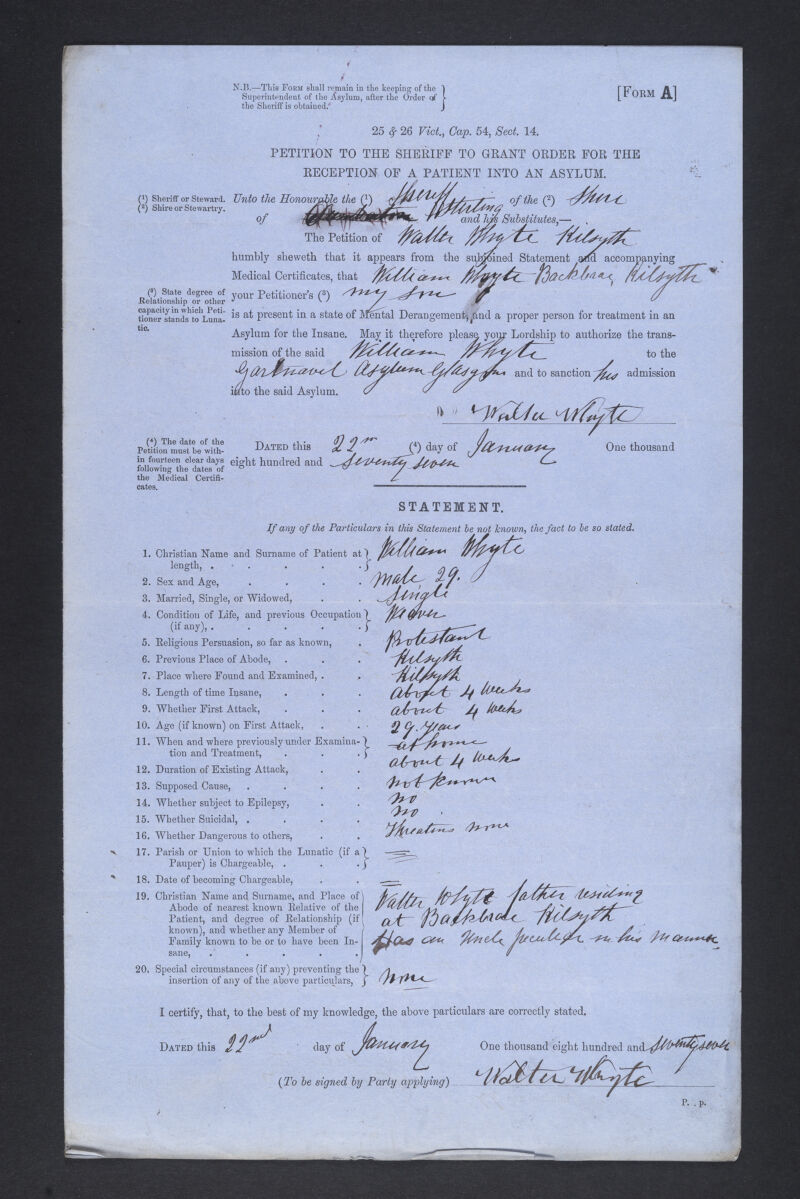 N.B.—This Form shall remain in the keeping of the
Superintendent of the Asylum, after the Order of
the Sheriff is obtained.
[Form A]
25 & 26 Vict., Cap. 54, Sect. 14.
PETITION TO THE SHERIFF TO GRANT ORDER FOR THE
RECEPTION OF A PATIENT INTO AN ASYLUM.
(1) Sheriff or Steward.
(2) Shire or Stewartry.
Unto the Honourable the (1) Sheriff of the (2) Shire
of Stirling and his Substitutes,—
The Petition of Walter Whyte Kilsyth
humbly sheweth that it appears from the subjoined Statement and accompanying
Medical Certificates, that William Whyte Backbrae, Kilsyth
(3) State degree of
Relationship or other
capacity in which Peti-
tioner stands to Luna-
tic.
your Petitioner's (3) my son
is at present in a state of Mental Derangement, and a proper person for treatment in an
Asylum for the Insane. May it therefore please your Lordship to authorize the trans-
mission of the said William Whyte to the
Gartnavel Asylum Glasgow and to sanction his admission
into the said Asylum.
Walter Whyte
(4) The date of the
Petition must be with-
in fourteen clear days
following the dates of
the Medical Certifi-
cates.
Dated this 22nd (4) day of January One thousand
eight hundred and seventy seven
STATEMENT.
If any of the Particulars in this Statement be not known, the fact to be so stated.
1. Christian Name and Surname of Patient at
length, William Whyte
2. Sex and Age, male 29.
3. Married, Single, or Widowed, Single
4. Condition of Life, and previous Occupation
(if any), Weaver
5. Religious Persuasion, so far as known, Protestant
6. Previous Place of Abode, Kilsyth
7. Place where Found and Examined, Kilsyth
8. Length of time Insane, about 4 weeks
9. Whether First Attack, about 4 weeks
10. Age (if known) on First Attack, 29. years
11. When and where previously under Examina-
tion and Treatment, at home
12. Duration of Existing Attack, about 4 weeks
13. Supposed Cause, not known
14. Whether subject to Epilepsy, no
15. Whether Suicidal, no
16. Whether Dangerous to others, Threatens none
17. Parish or Union to which the Lunatic (if a
Pauper) is Chargeable,
18. Date of becoming Chargeable,
19. Christian Name and Surname, and Place of
Abode of nearest known Relative of the
Patient, and degree of Relationship (if
known), and whether any Member of
Family known to be or to have been In-
sane,
Walter Whyte father residing
at Backbrae Kilsyth
Has an Uncle peculiar in his manner
20. Special circumstances (if any) preventing the
insertion of any of the above particulars, None
I certify, that, to the best of my knowledge, the above particulars are correctly stated.
Dated this 22nd day of January One thousand eight hundred and seventy seven
(To be signed by Party applying) Walter Whyte
P. . p.